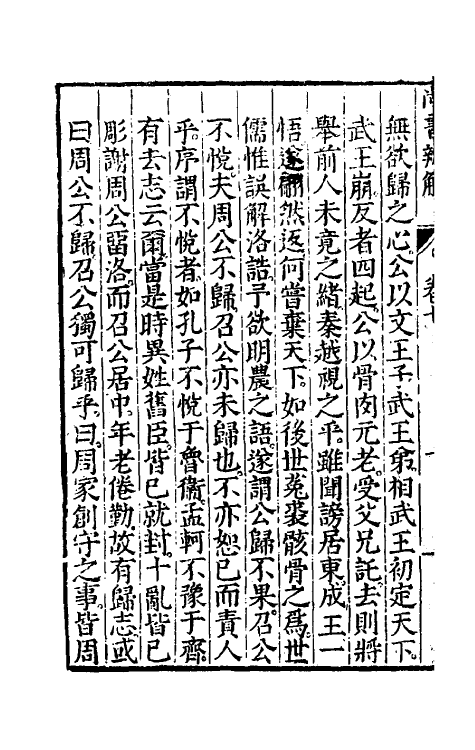 尚書辨解
卷七
無欲歸之心。公以文王子。武王弟。相武王初定天下。
武王崩。反者四起。公以骨肉元老。受父兄託。去則將
舉前人未竟之緒。秦越視之乎。雖聞謗居東。成王一
悟。遂翻然返。何嘗棄天下。如後世菟裘骸骨之爲。世
儒惟誤解洛誥。予欲明農之語。遂謂公歸不果。召公
不悅。夫周公不歸。召公亦未歸也。不亦恕己而責人
乎。序謂不悅者。如孔子不悅于魯衞。孟軻不豫于齊。
有去志云爾。當是時異姓舊臣。皆已就封。十亂皆已
彫謝。周公畱洛。而召公居中。年老倦勤。故有歸志。或
曰周公不歸。召公獨可歸乎。曰。周家創守之事。皆周